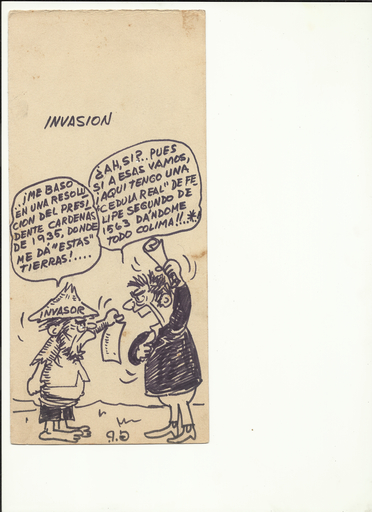 INVASION
...¡ME BASO
EN UNA RESOLU
CION DEL PRESI
DENTE CARDENAS
DE 1935, DONDE
ME DA "ESTAS"
TIERRAS!....
¿AH, SI?..PUES
SI A ESAS VAMOS,
¡AQUI TENGO UNA
"CEDULA REAL" DE FE
LIPE SEGUNDO DE
1563 DÁNDOME
TODO COLIMA!!.*!
INVASOR